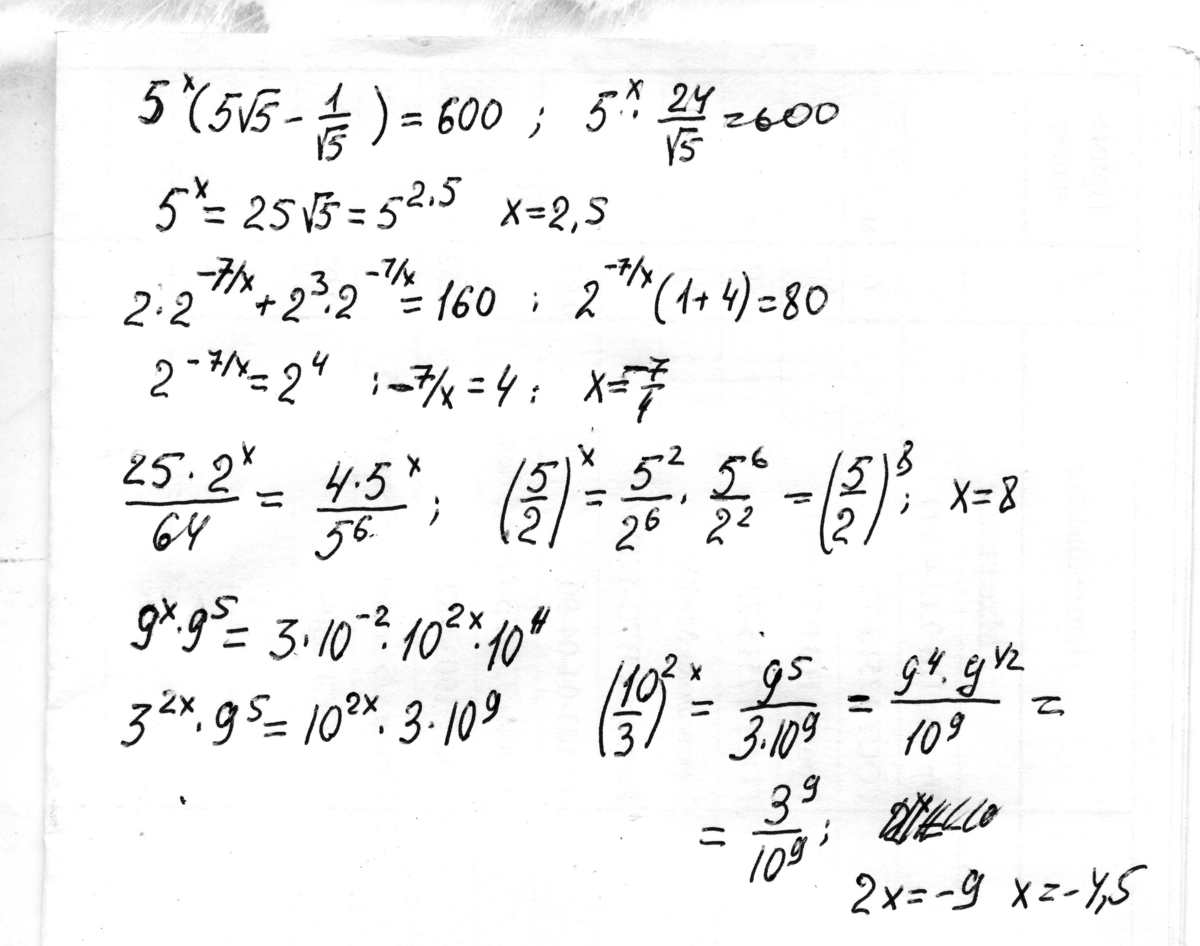 5^x(5√5 - 1/√5) = 600 ; 5^x · 24/√5 = 600
5^x = 25√5 = 5^2,5 x=2,5
2·2^-7/x + 2^3·2^-7/x = 160 ; 2^-7/x (1+4) = 80
2^-7/x = 2^4 ; -7/x = 4 ; x = -7/4
25·2^x/64 = 4·5^x/5^6 ; (5/2)^x = 5^2/2^6 · 5^6/2^2 = (5/2)^8 ; x=8
9^x·9^5 = 3·10^-2·10^2x·10^11
3^2x·9^5 = 10^2x·3·10^9 (10/3)^2x = 9^5/3·10^9 = 9^4·9^1/2/10^9 =
= 3^9/10^9 ;
2x=-9 x=-4,5